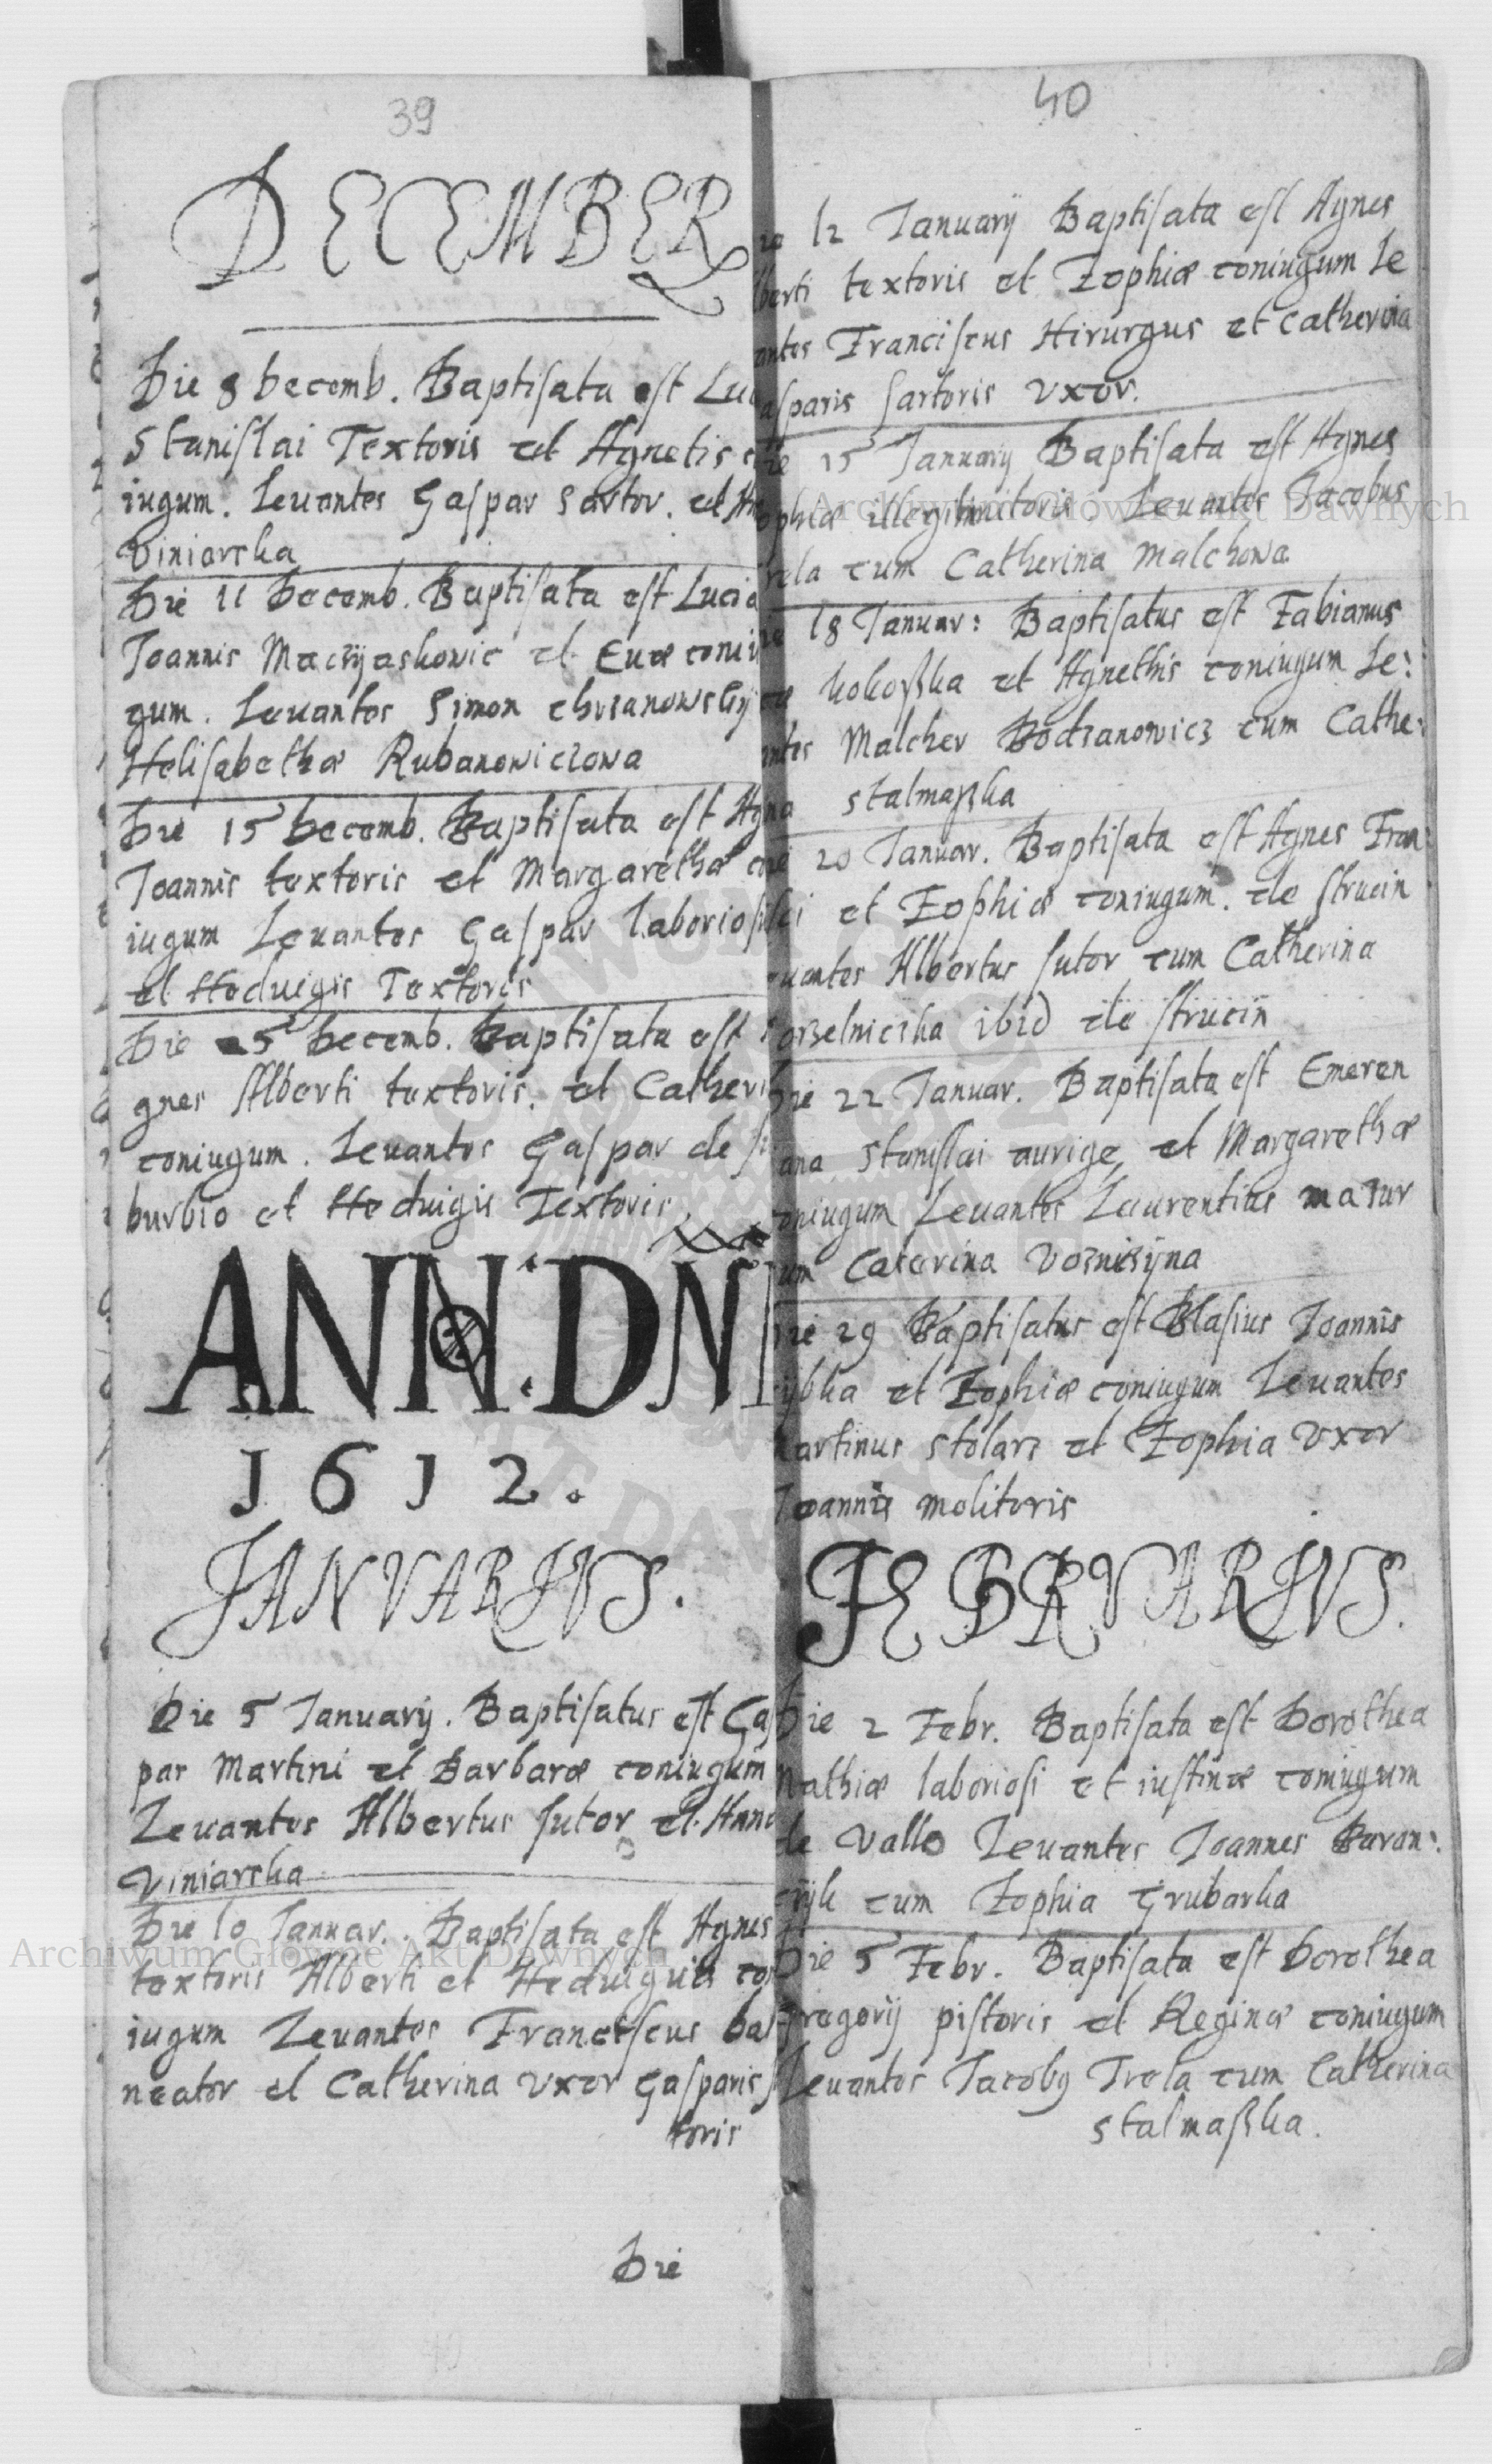 39
DECEMBER
Die 8 Decemb. Baptisata est Luc
Stanislai Textoris et Agnetis c
iugum. Levantes Gaspar Sartor. et An
Viniarska
Die 11 Decemb. Baptisata est Lucia
Joannis Maczyaskowic et Evæ coniu
gum. Levantes Simon chrzanowsky
Helisabethæ Rubanowiczowa
Die 15 Decemb. Baptisata est Agna
Joannis textoris et Margarethæ con
iugum Levantes Gaspar laboriosi
et Heduigis Textoris
Die 25 Decemb. Baptisata est
gnes Alberti textoris. et Catheri
coniugum. Levantes Gaspar de s
burbio et Heduigis Textoris
ANN: DÑI
1612.
JANVARIVS.
Die 5 Januarij. Baptisatus est Gas
par Martini et Barbaræ coniugum
Levantes Albertus sutor et Anna
Viniarska
Die 10 Januar. Baptisata est Agnes
textoris Alberti et Heduigis con
iugum Levantes Franciscus bal
neator et Catherina vxor Gasparis s
toris
Die
40
12 Januarij Baptisata est Agnes
lberti textoris et Zophiæ coniugum Le
antes Franciscus Hirurgus et Catherina
asparis sartoris vxor.
ie 15 Januarij Baptisata est Agnes
ophiæ illegitimitoris. Levantes Jacobus
rela cum Catherina Malchowa
18 Januar: Baptisatus est Fabianus
kokoßka et Agnethis coniugum Le:
antes Malcher Bodzanowicz cum Cathe:
stalmaßka
20 Januar. Baptisata est Agnes Fran:
sci et Zophiæ coniugum. de strucin
euantes Albertus sutor cum Catherina
orzelniczka ibid de strucin
Die 22 Januar. Baptisata est Emeren
ana Stanislai aurige et Margarethæ
oniugum Levantes Laurentius mazur
um Caterina Vozniczyna
Die 29 Baptisatus est Blasius Joannis
ybka et Zophiæ coniugum Levantes
artinus stolarz et Zophia vxor
Joannis molitoris
FEBRVARIVS.
Die 2 Febr. Baptisata est Dorothea
Mathiæ laboriosi et iustinæ coniugum
de Vallo Levantes Joannes Baran:
czyk cum Zophia Grubarka
Die 5 Febr. Baptisata est Dorothea
Gregorij pistoris et Reginæ coniugum
Levantes Jacobus Trela cum Catherina
stalmaßka.
Archiwum Główne Akt Dawnych
Archiwum Główne Akt Dawnych